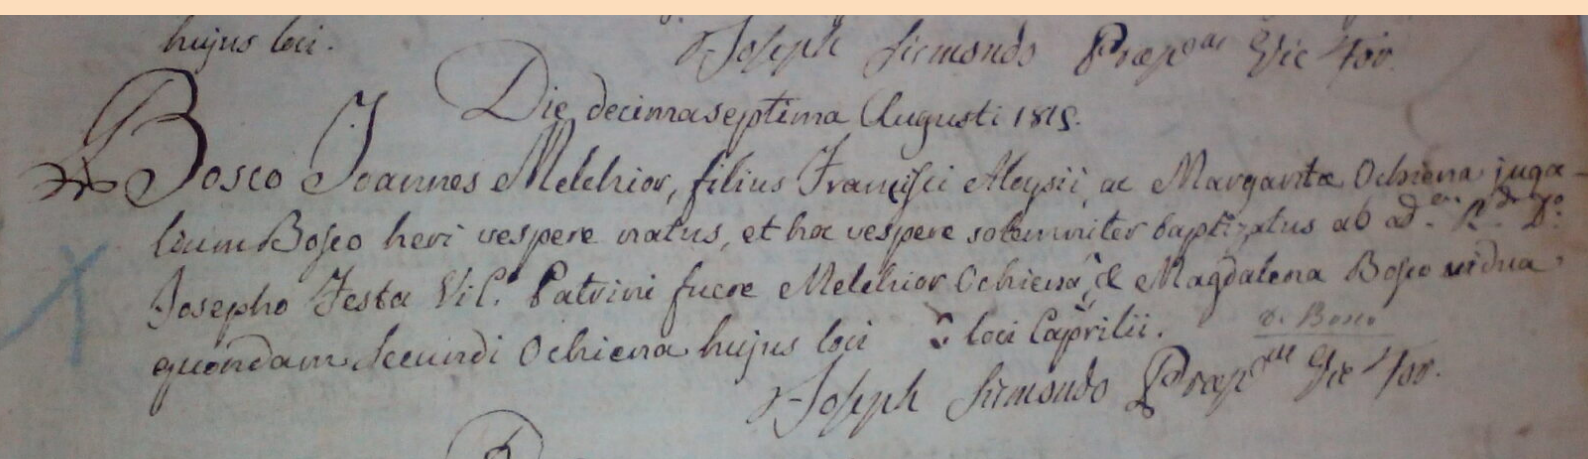 hujus loci.
Joseph Sismondo Præp.us Vic For.
Die decimaseptima Augusti 1815.
Bosco Joannes Melchior, filius Francisci Aloysii, ac Margaritæ Ochiena juga-
lium Bosco heri vespere natus, et hac vespere solemniter baptizatus ab ad.m R.do D.o
Josepho Festa Vic.o Patrini fuere Melchior Ochiena, & Magdalena Bosco vidua
quondam Secundi Ochiena hujus loci loci Caprilii.
d. Bosco
Joseph Sismondo Præp.us Vic For.